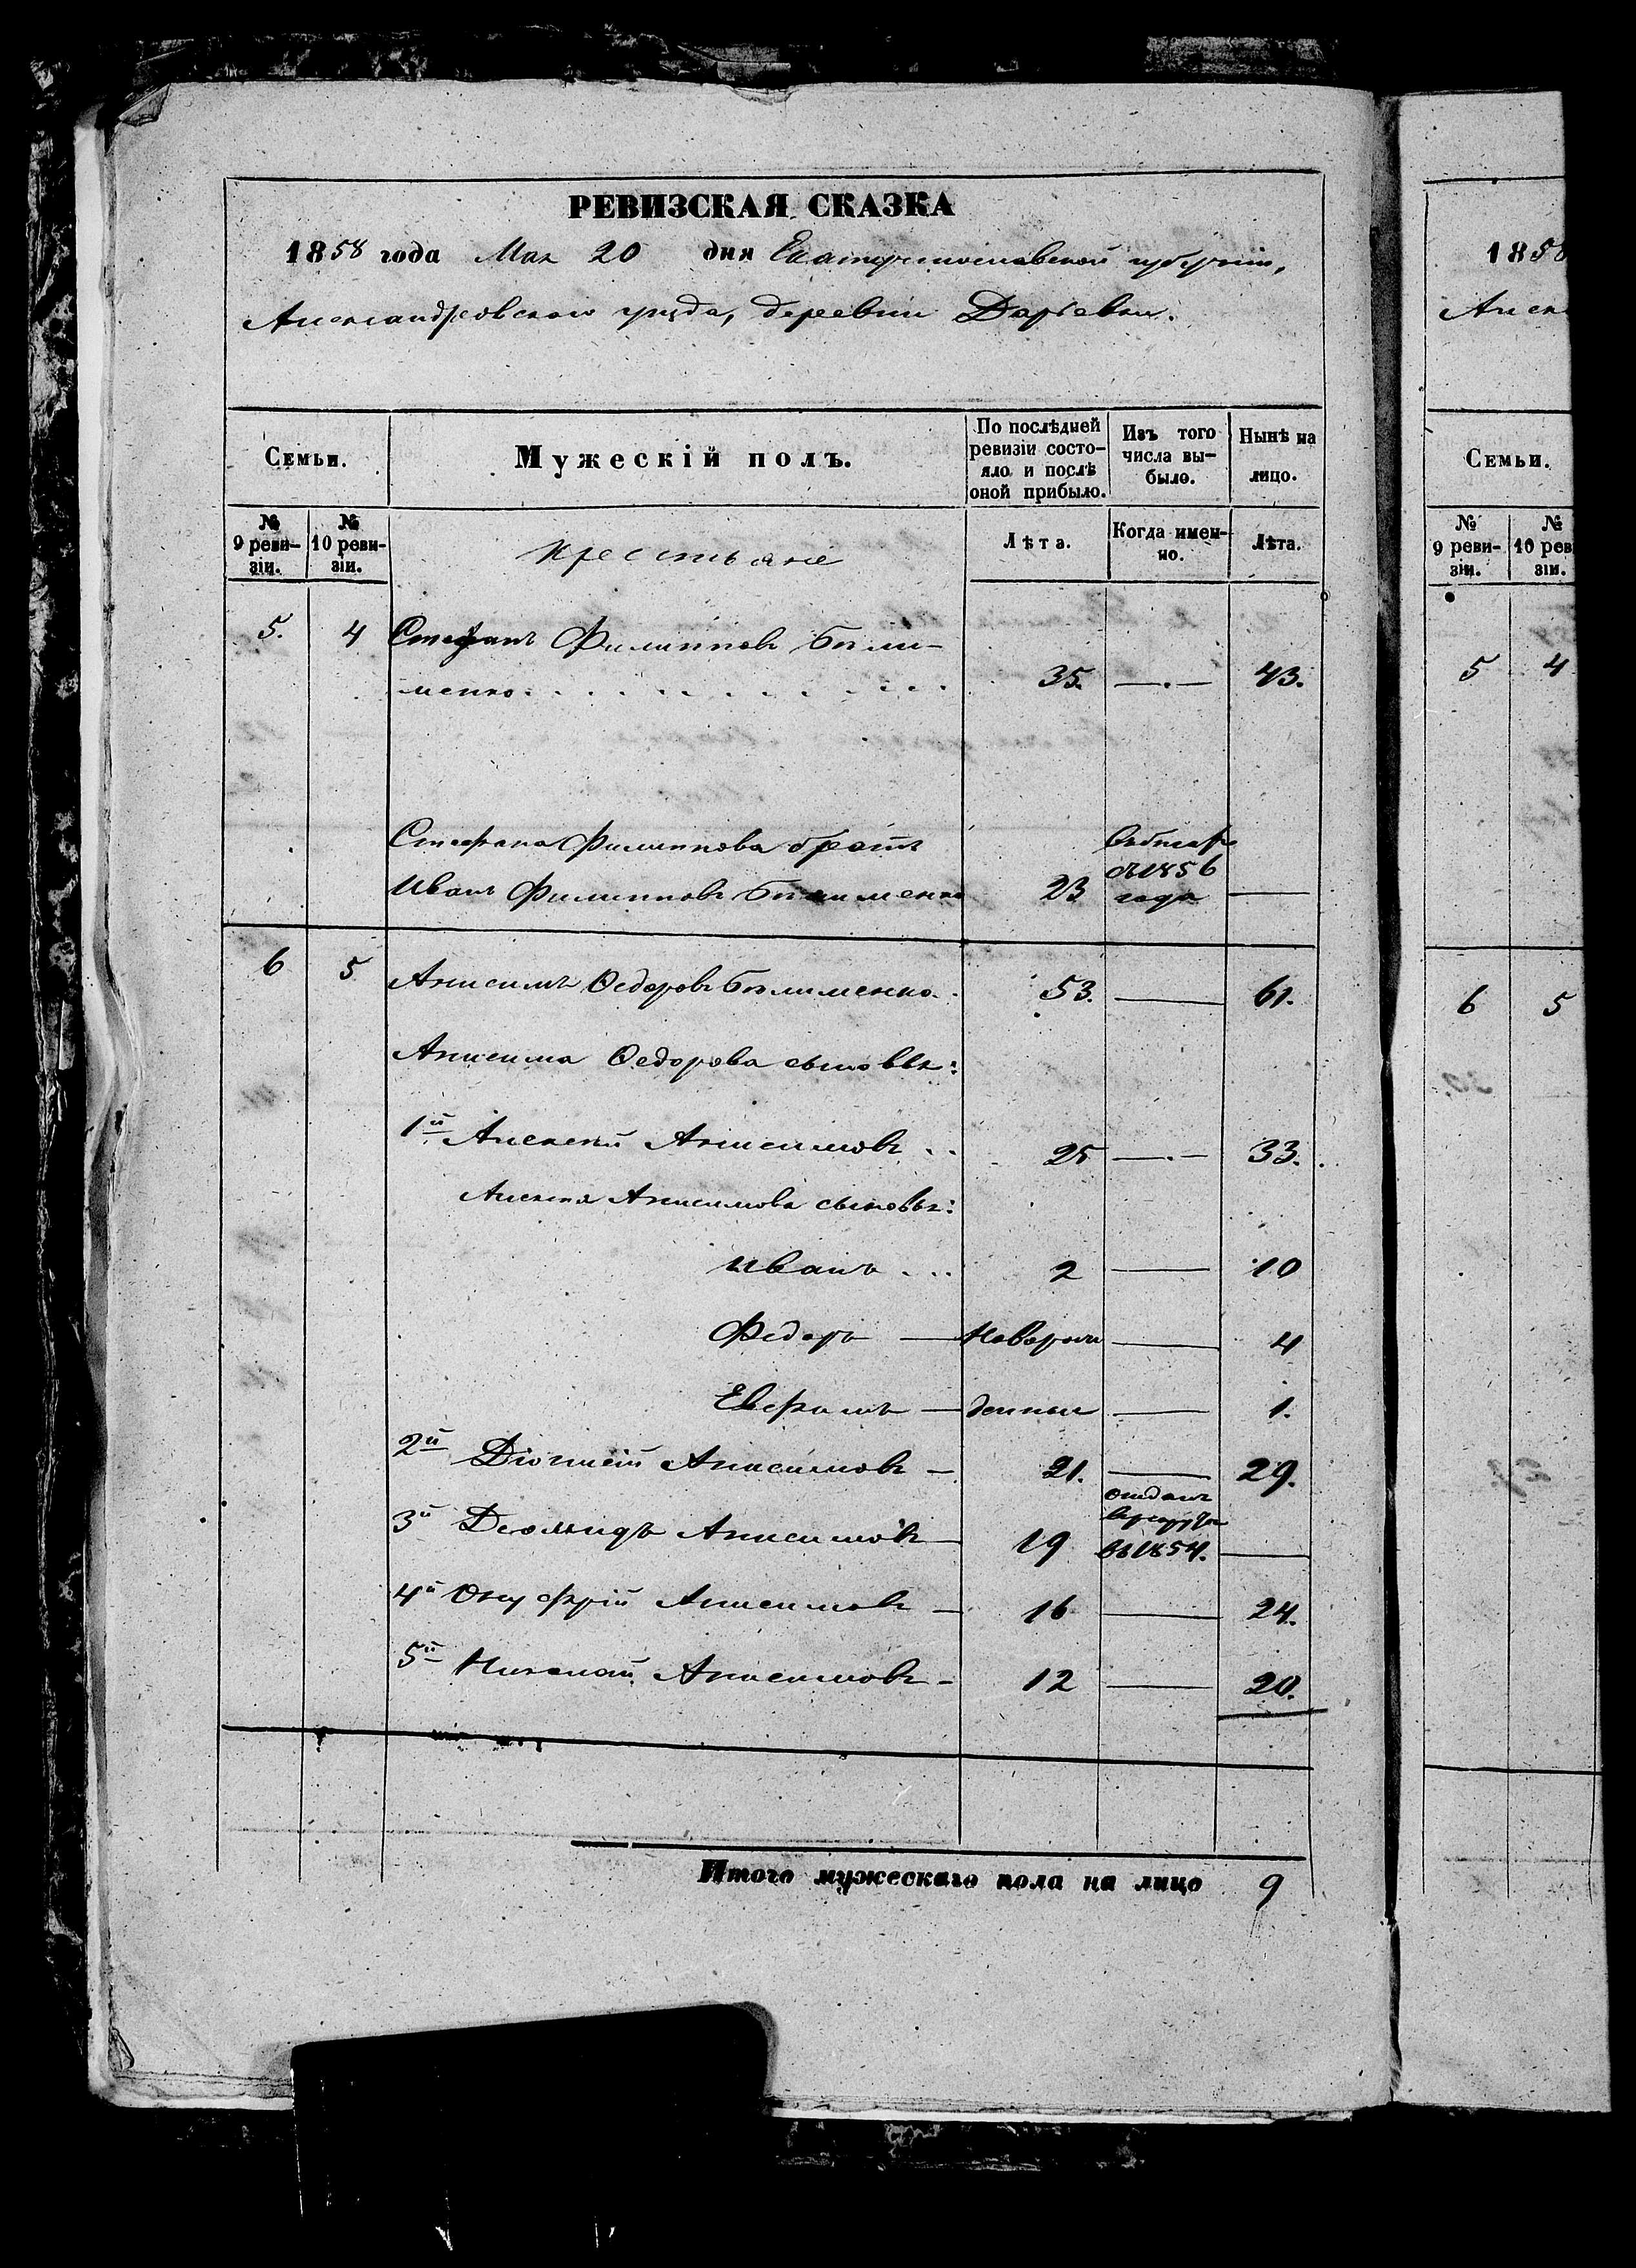 РЕВИЗСКАЯ СКАЗКА
1858 года Мая 20 дня Екатеринославской губерніи,
Александровскаго уѣзда, деревни Дарьевки.
Семьи.
Мужескій полъ.
По послѣдней ревизіи состояло и послѣ оной прибыло.
Изъ того числа выбыло.
Нынѣ на лицо.
№ 9 ревизіи.
№ 10 ревизіи.
Крестьяне
Лѣта.
Когда именно.
Лѣта.
5. 4 Стефанъ Филиповъ Били-
менко 35. —.— 43.
Стефана Филипова братъ
Иванъ Филиповъ Билименко 23 съ 1856 года —
6 5 Анисимъ Ѳедоровъ Билименко. 53. — 61.
Анисима Ѳедорова сыновья:
1й Алексѣй Анисимовъ .. 25 —.— 33.
Алексѣя Анисимова сыновья:
Иванъ ... 2 — 10
Федоръ — Новорож — 4
Евфимъ — денные — 1.
2й Діонисій Анисимовъ — 21. — 29.
3й Деомидъ Анисимовъ — 19 отданъ в рекруты въ 1854. —
4й Онуфрій Анисимовъ — 16 — 24.
5й Николай Анисимовъ — 12 — 20.
Итого мужескаго пола на лицо 9
1858
Алек
Семьи.
№ 9 ревизіи.
№ 10 рев зіи.
5 4
6 5